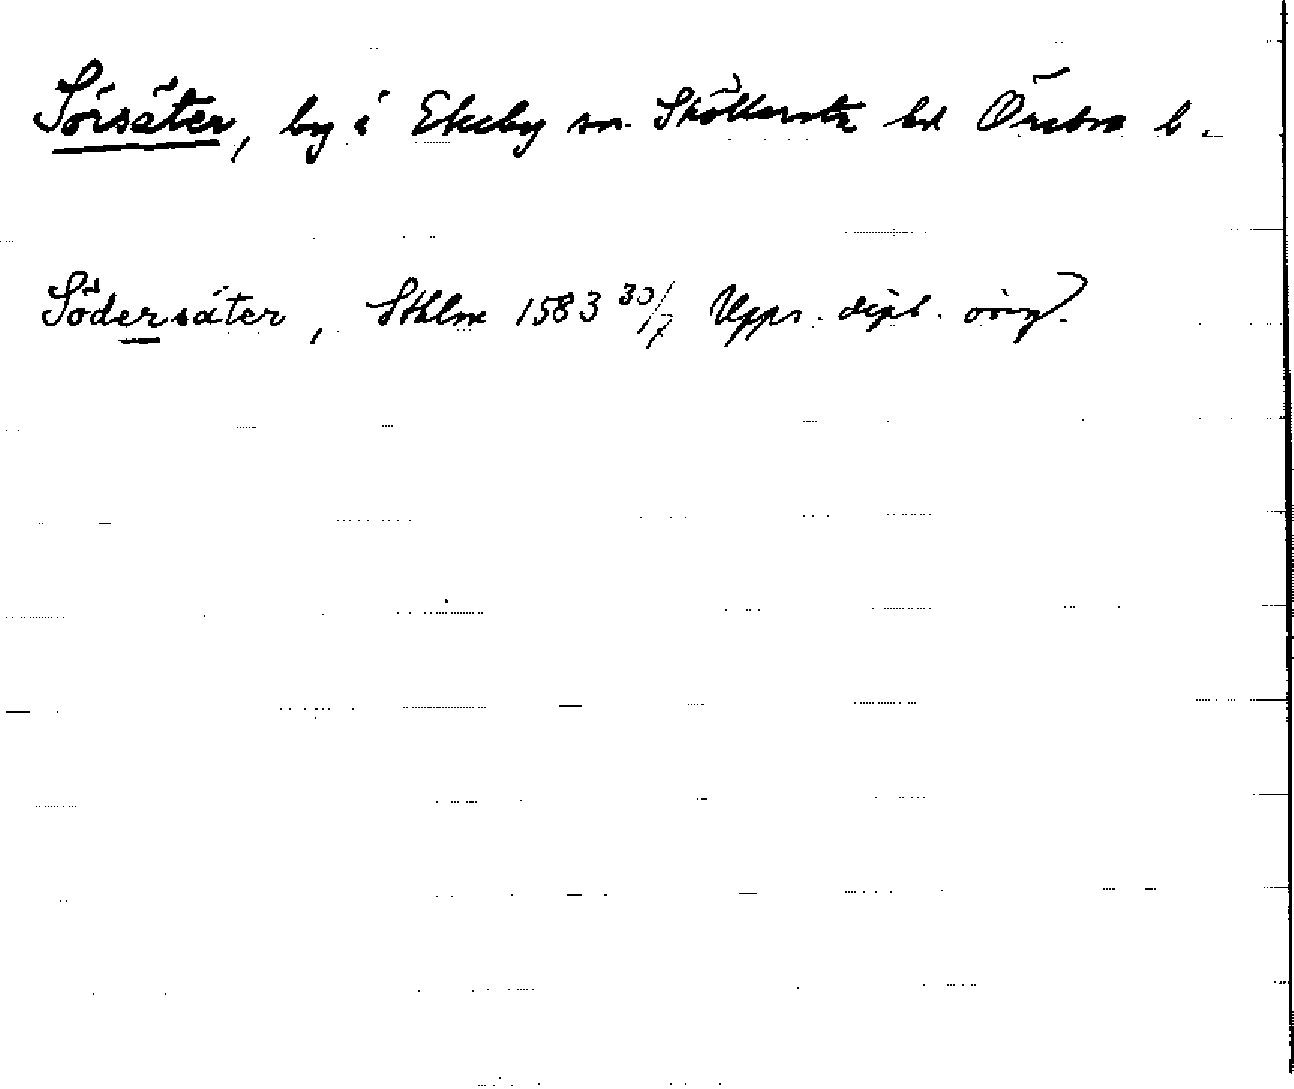 Sörsäter, by i Ekeby sn. Sköllersta hd Örebro l.
Södersäter, Sthlm 1583 30/7 Upps. dipl. orig.